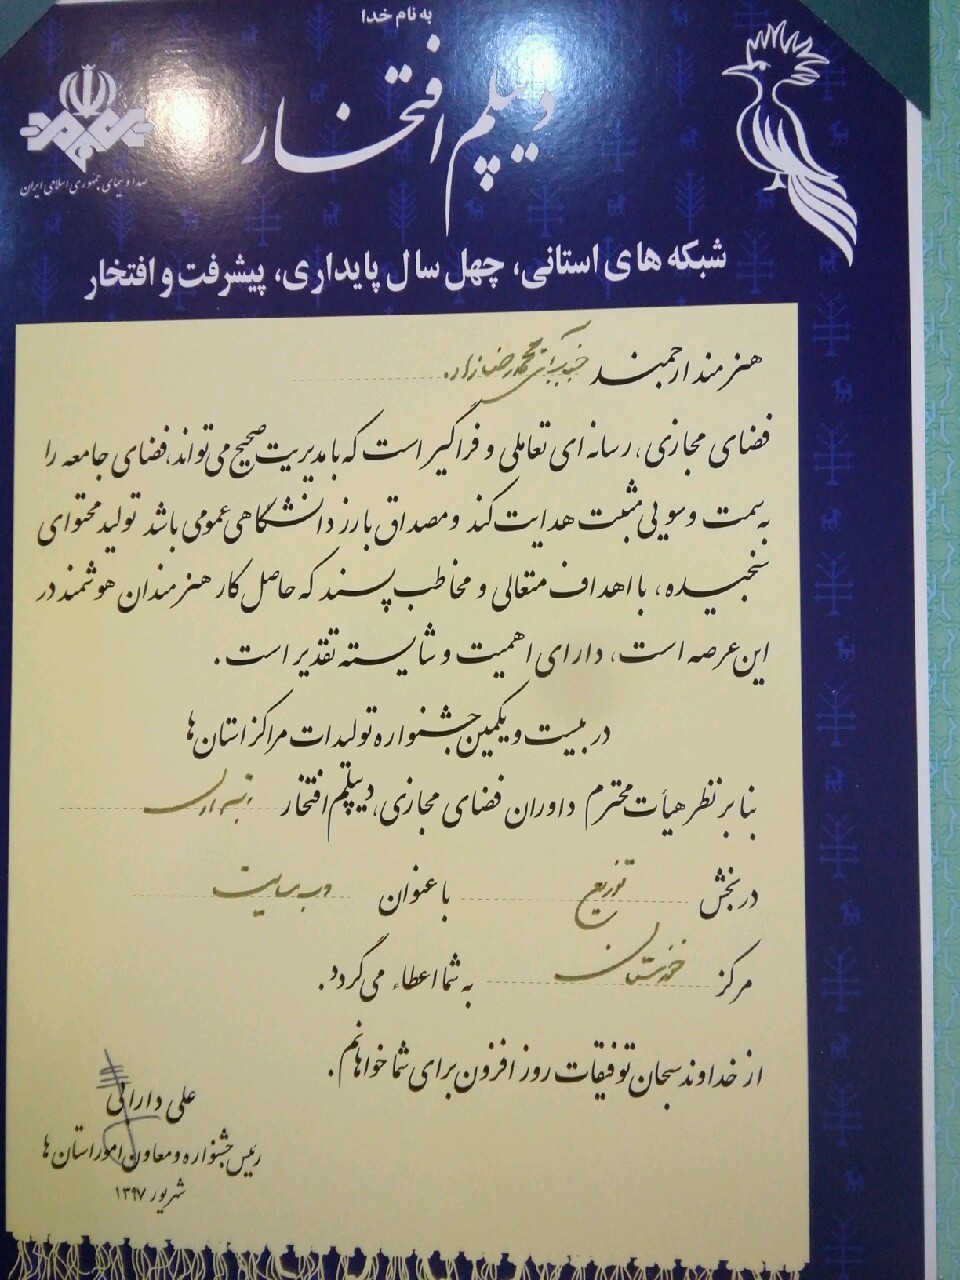 به نام خدا
دیپلم افتخار
صدا و سیمای جمهوری اسلامی ایران
شبکه های استانی، چهل سال پایداری، پیشرفت و افتخار
هنرمند ارجمند جناب آقای محمد رضازاد
فضای مجازی، رسانه ای تعاملی و فراگیر است که با مدیریت صحیح می تواند، فضای جامعه را
به سمت و سویی مثبت هدایت کند و مصداق بارز دانشگاهی عمومی باشد تولید محتوای
سنجیده، با اهداف متعالی و مخاطب پسند که حاصل کار هنرمندان هوشمند در
این عرصه است، دارای اهمیت و شایسته تقدیر است.
در بیست و یکمین جشنواره تولیدات مراکز استان ها
بنا بر نظر هیأت محترم داوران فضای مجازی، دیپلم افتخار
در بخش توزیع با عنوان وب سایت
مرکز خوزستان به شما اعطاء می گردد.
از خداوند سبحان توفیقات روز افزون برای شما خواهانم.
علی دارابی
رئیس جشنواره و معاون امور استان ها
شهریور ۱۳۹۷